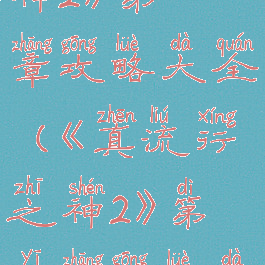 神2》第
zhāng gōng lüè dà quán
章攻略大全
zhēn liú xíng
(《真流行
zhī shén dì
之神2》第
yī zhāng gōng lüè dà